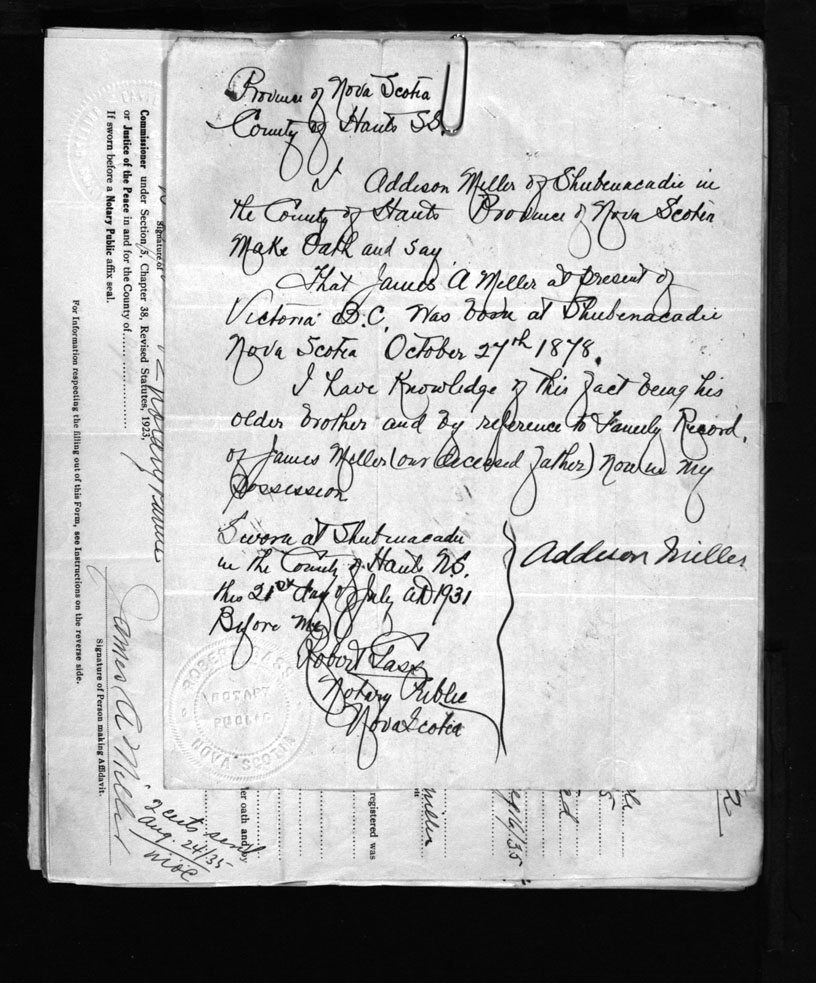 Province of Nova Scotia
County of Hants SS.
I Addison Miller of Shubenacadie in
the County of Hants Province of Nova Scotia
Make Oath and Say
That James A Miller at present of
Victoria B.C. Was born at Shubenacadie
Nova Scotia October 27th 1878.
I have Knowledge of this fact being his
older brother and by reference to Family Record.
of James Miller (our deceased father) Now in My
Possession
Sworn at Shubenacadie
in the County of Hants N.S.
this 21st day of July AD 1931
Before Me
Robert
Notary Public
Nova Scotia
Addison Miller
ROBERT
NOTARY
PUBLIC
NOVA SCOTIA
Signature of
Commissioner under Section 5, Chapter 38, Revised Statutes, 1923,
or Justice of the Peace in and for the County of
If sworn before a Notary Public affix seal.
For Information respecting the filling out of this Form, see Instructions on the reverse side.
James A Miller
Signature of Person making Affidavit.
2 certs send
Aug. 24/35
er oath and by
registered was
Miller